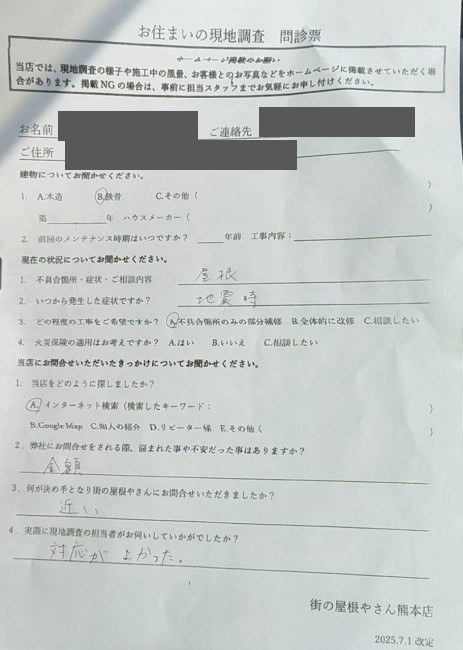 お住まいの現地調査 問診票
ホームページ掲載のお願い
当店では、現地調査の様子や施工中の風景、お客様とのお写真などをホームページに掲載させていただく場
合があります。掲載NGの場合は、事前に担当スタッフまでお気軽にお申し付けください。
お名前 ご連絡先
ご住所
建物についてお聞かせください。
1. A.木造 B.鉄骨 C.その他 ( )
築 年 ハウスメーカー ( )
2. 前回のメンテナンス時期はいつですか? 年前 工事内容:
現在の状況についてお聞かせください。
1. 不具合箇所・症状・ご相談内容 屋根
2. いつから発生した症状ですか? 地震時
3. どの程度の工事をご希望ですか? A.不具合箇所のみの部分補修 B.全体的に改修 C.相談したい
4. 火災保険の適用はお考えですか? A.はい B.いいえ C.相談したい
当店にお問合せいただいたきっかけについてお聞かせください。
1. 当店をどのように探しましたか?
A.インターネット検索 (検索したキーワード: )
B.Google Map C.知人の紹介 D.リピーター様 E.その他 ( )
2. 弊社にお問合せをされる際、悩まれた事や不安だった事はありますか?
金額
3. 何が決め手となり街の屋根やさんにお問合せいただきましたか?
近い
4. 実際に現地調査の担当者がお伺いしていかがでしたか?
対応が よかった。
街の屋根やさん熊本店
2025.7.1 改定